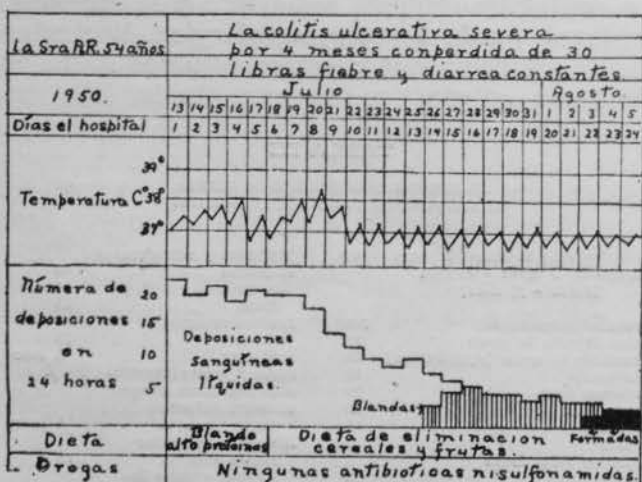 La Sra P.R. 54 años
La colitis ulcerativa severa
por 4 meses con perdida de 30
libras fiebre y diarrea constantes
1950.
Julio
Agosto.
13 14 15 16 17 18 19 20 21 22 23 24 25 26 27 28 29 30 31 1 2 3 4 5
Días el hospital
1 2 3 4 5 6 7 8 9 10 11 12 13 14 15 16 17 18 19 20 21 22 23 24
39°
Temperatura C° 38°
37°
Número de
deposiciones
en
24 horas
20
15
10
5
Deposiciones
sanguíneas
líquidas.
Blandas
Formadas
Dieta
Blando
alto proteinas
Dieta de eliminacion
cereales y frutas.
Drogas
Ningunas antibioticas ni sulfonamidas